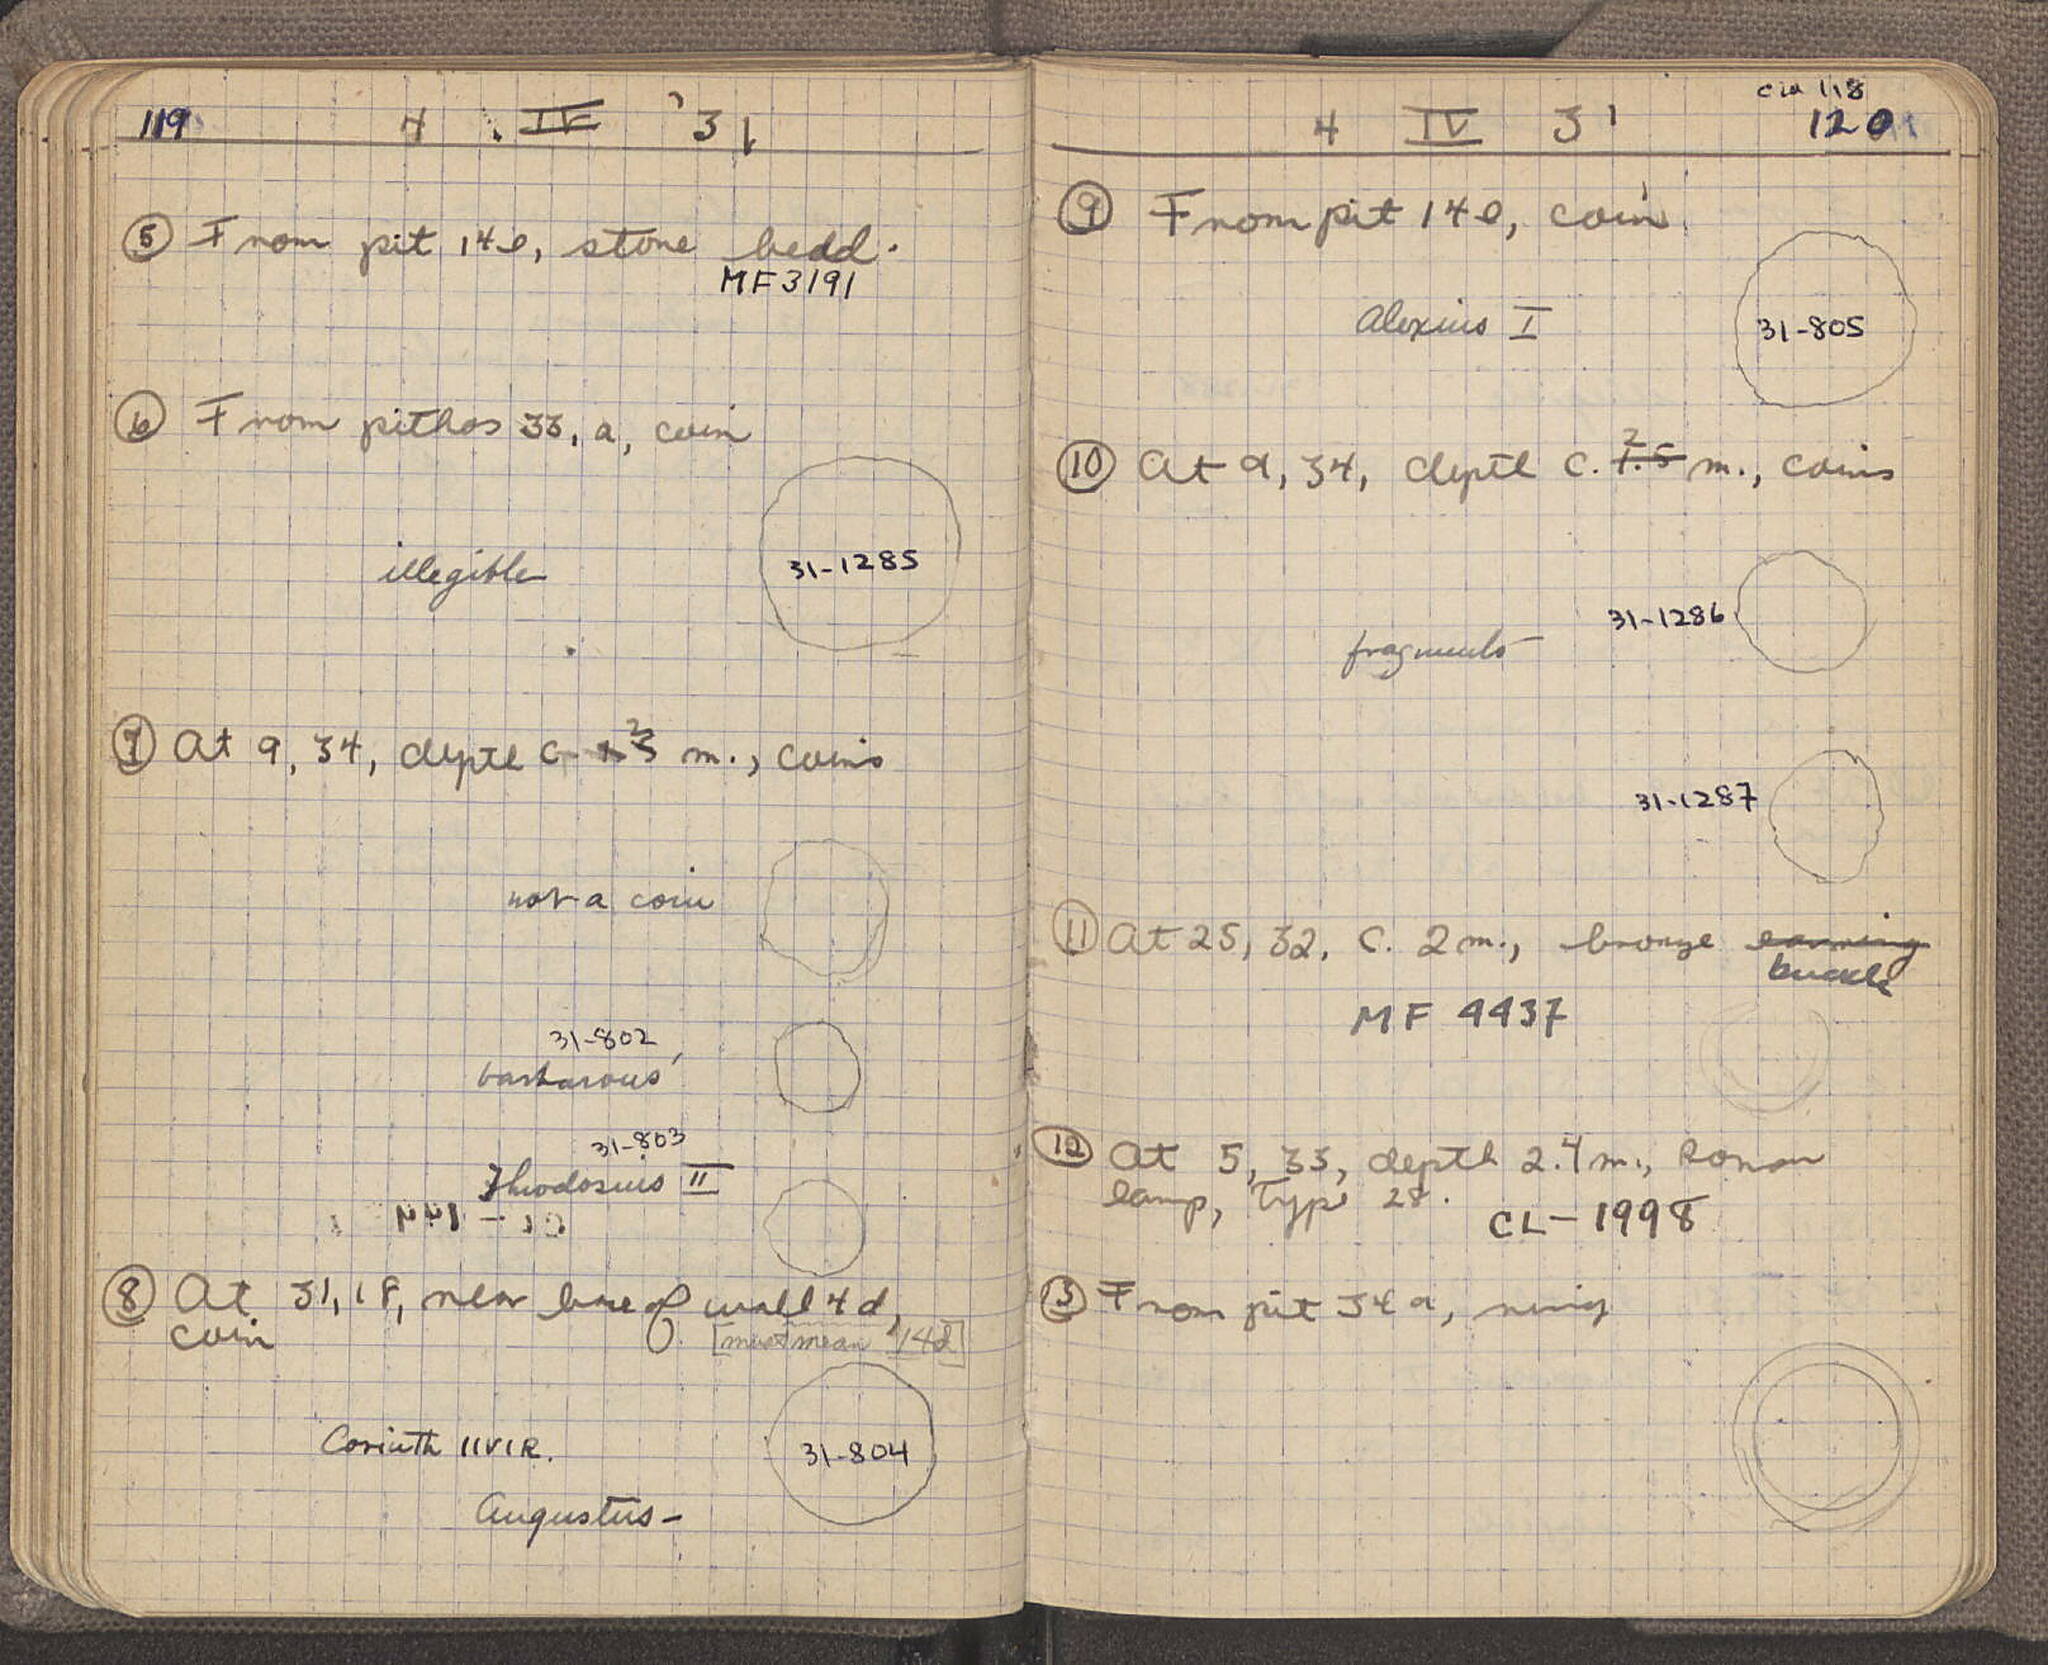 119 4 IV '31
⑤ From pit 14e, stone bead.
MF 3191
⑥ From pithos 33, a, coin
illegible 31-1285
⑦ At 9, 34, depth c. 2 m., coins
not a coin
31-802
barbarous
31-803
Theodosius II
⑧ At 31, 18, near base of wall 4d,
coin [must mean 14d]
Corinth IIVIR. 31-804
Augustus-
cia 118
4 IV 31 120
⑨ From pit 14e, coin
Alexius I 31-805
⑩ At 9, 34, depth c. 1.5 2 m., coins
31-1286
fragments
31-1287
⑪ At 25, 32, c. 2 m., bronze earring
buckle
MF 4437
⑫ At 5, 33, depth 2.4 m., Roman
lamp, Type 28.
CL-1998
⑬ From pit 34a, ring